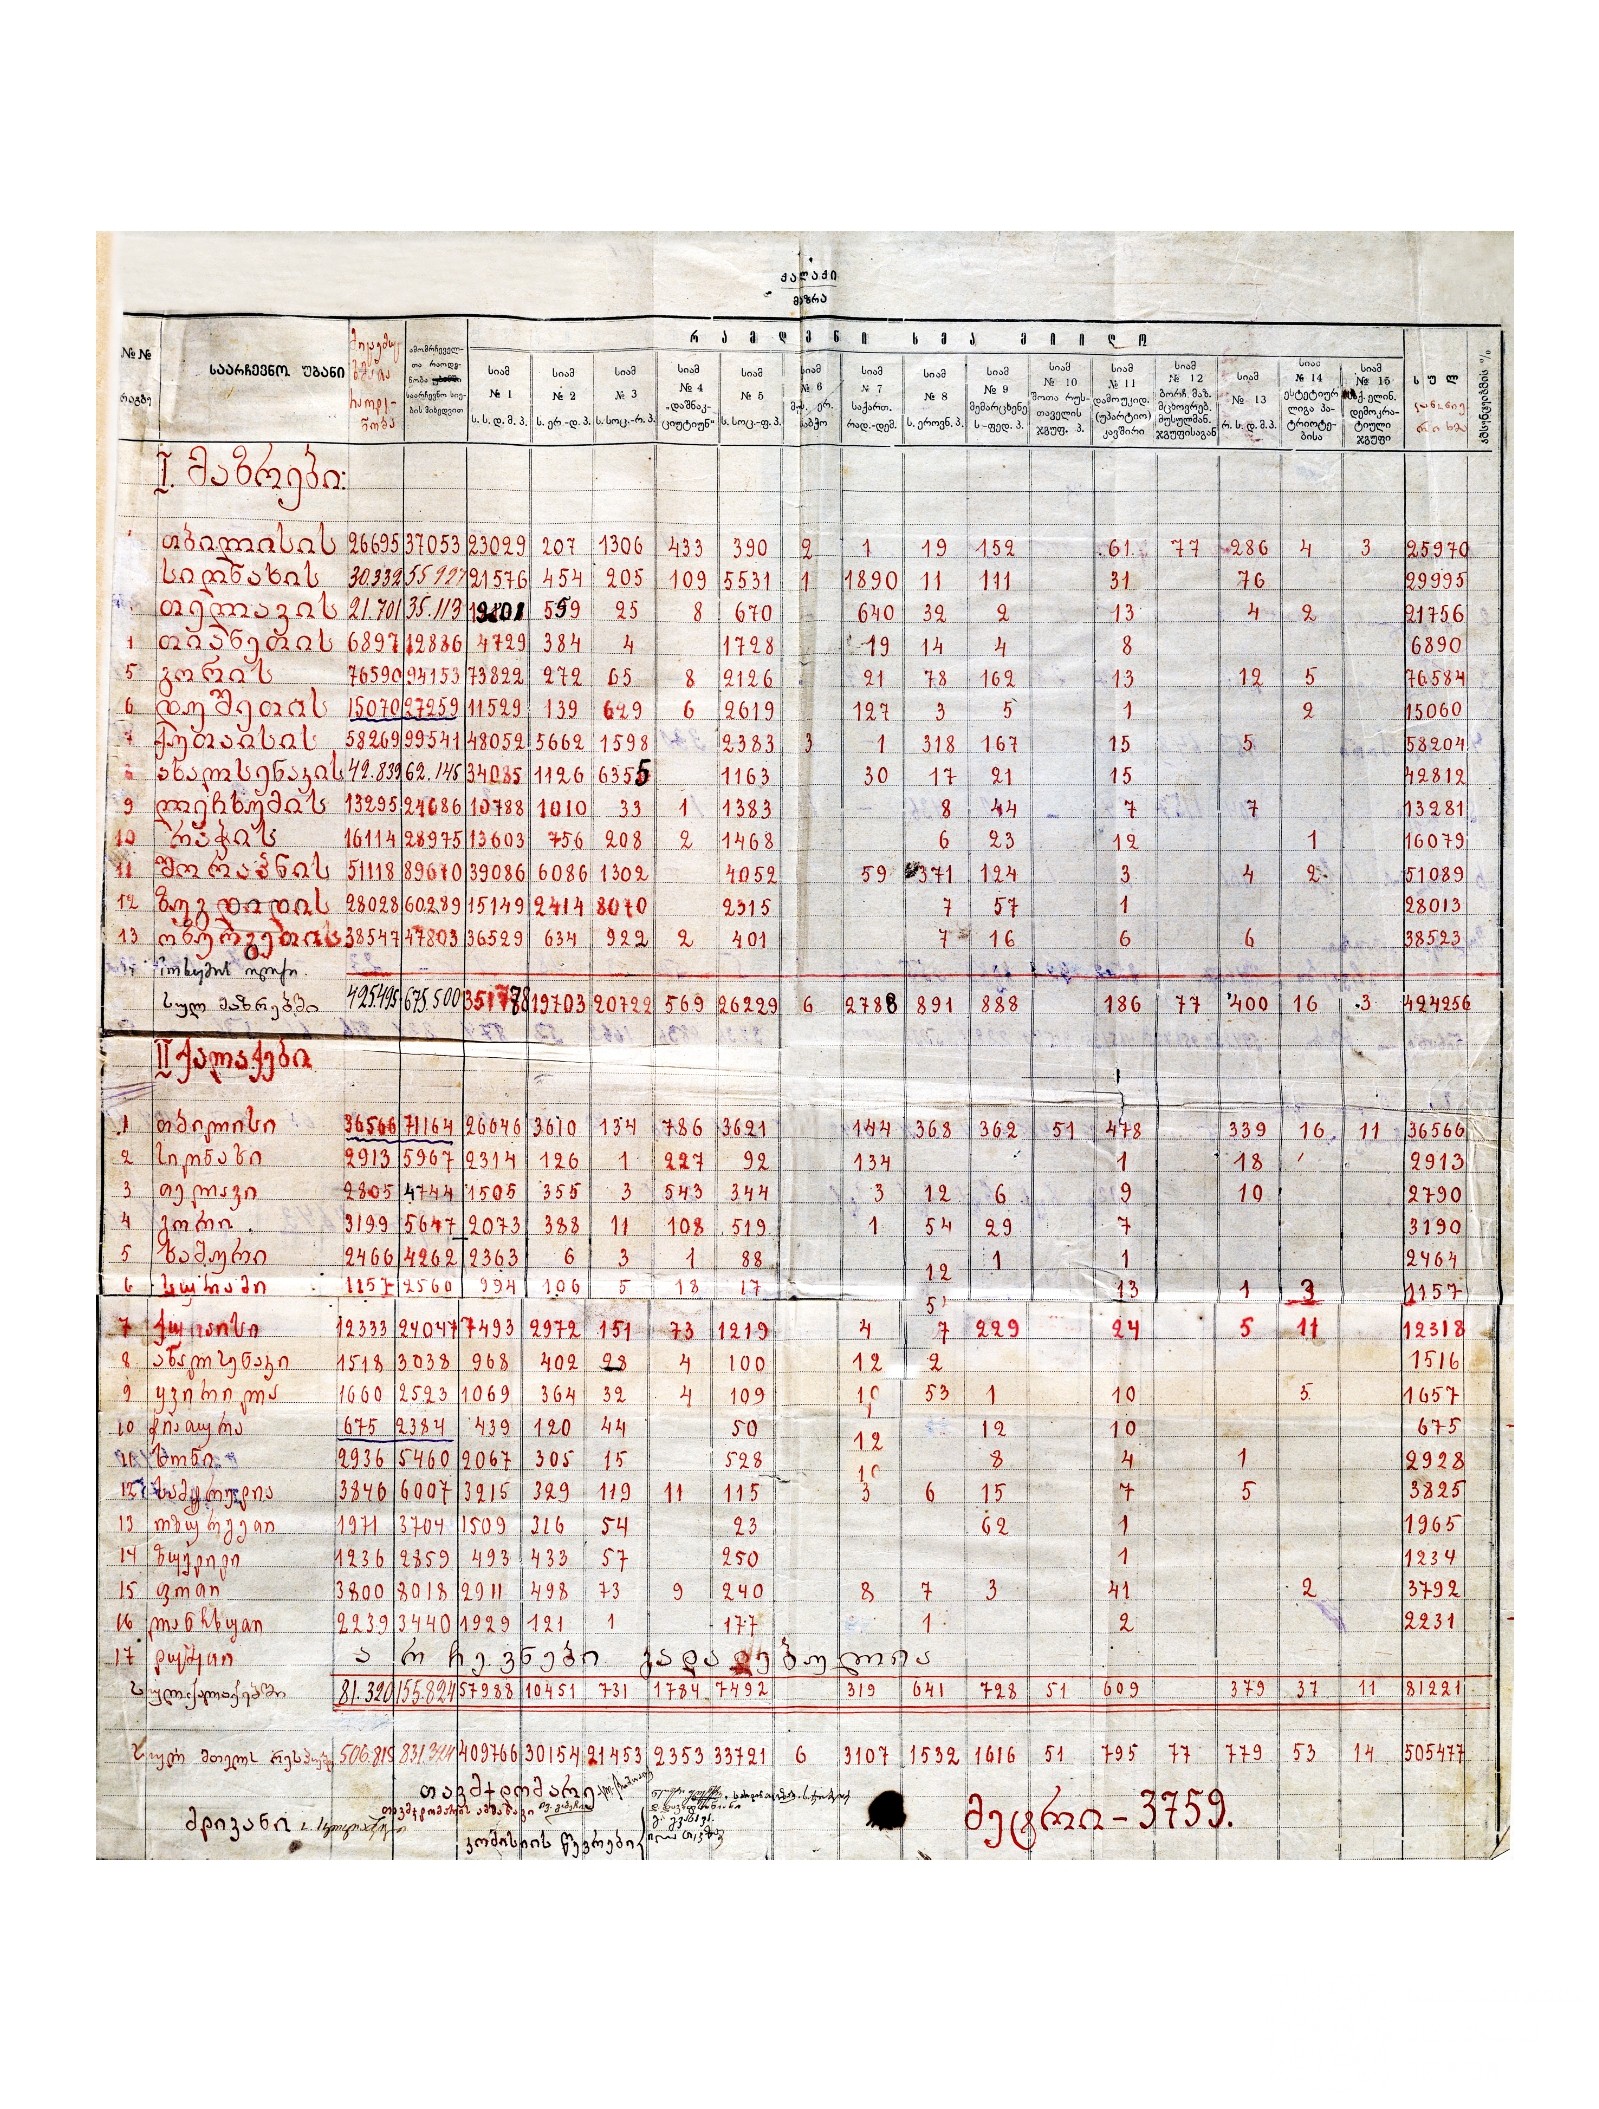 ქალაქი
მაზრა
რამდენი ხმა მიიღო
№№ რაგზე საარჩევნო უბანი სიამ № 1 ს. ს. დ. მ. პ. სიამ № 2 ს. ერ.-დ. პ. სიამ № 3 ს. სოც.-რ. პ. სიამ № 4 „დაშნაკ-ციუტიუნ“ სიამ № 5 ს. სოც.-ფ. პ. სიამ № 6 სიამ № 7 საქართ. რად.-დემ. სიამ № 8 ს. ეროვნ. პ. სიამ № 9 მემარცხენე ს.-ფედ. პ. სიამ № 10 შოთა რუს-თაველის ჯგუფ. პ. სიამ № 11 დამოუკიდ. (უპარტიო) კავშირი სიამ № 12 ბორჩ. მაზ. მცხოვრებ. მუსულმან. ჯგუფისაგან სიამ № 13 რ. ს. დ. მ. პ. სიამ № 14 ესტეტიურ ლიგა პა-ტრიოტე-ბისა სიამ № 15 ელინ. დემოკრა-ტიული ჯგუფი სულ
I. მაზრები:
თბილისის 26695 37053 23029 207 1306 433 390 2 1 19 152 61 77 286 4 3 25970
სიღნახის 30.332 55.927 21576 454 205 109 5531 1 1890 11 111 31 76 29995
თელავის 21.701 35.113 559 25 8 670 640 32 2 13 4 2 21756
თიანეთის 6897 12886 4729 384 4 1728 19 14 4 8 6890
5 გორის 76590 94153 73822 272 65 8 2126 21 78 162 13 12 5 76584
6 დუშეთის 15070 27259 11529 139 629 6 2619 127 3 5 1 2 15060
7 ქუთაისის 58269 99541 48052 5662 1598 2383 3 1 318 167 15 5 58204
8 ახალსენაკის 42.839 62.145 34085 1126 6355 1163 30 17 21 15 42812
9 ლეჩხუმის 13295 24686 10788 1010 33 1 1383 8 44 7 7 13281
10 რაჭის 16114 28975 13603 756 208 2 1468 6 23 12 1 16079
11 შორაპნის 51118 89670 39086 6086 1302 4052 59 371 124 3 4 2 51089
12 ზუგდიდის 28028 60289 15149 2414 8070 2315 7 57 1 28013
13 ოზურგეთის 38547 47803 36529 634 922 2 401 7 16 6 6 38523
სულ მაზრებში 425.495 675.500 351778 19703 20722 569 26229 6 2788 891 888 186 77 400 16 3 424256
II ქალაქები
1 თბილისი 36566 71164 26646 3610 134 786 3621 144 368 362 51 478 339 16 11 36566
2 სიღნახი 2913 5967 2314 126 1 227 92 134 1 18 2913
3 თელავი 2805 4744 1505 355 3 543 344 3 12 6 9 10 2790
4 გორი 3199 5647 2073 388 11 108 519 1 54 29 7 3190
5 ხაშური 2466 4262 2363 6 3 1 88 1 1 2464
6 სურამი 1157 2560 994 106 5 18 17 12 13 1 3 1157
7 ქუთაისი 12333 24047 7493 2972 151 73 1219 4 7 229 24 5 11 12318
8 ახალსენაკი 1518 3038 968 402 28 4 100 12 2 1516
9 ყვირილა 1660 2523 1069 364 32 4 109 53 1 10 5 1657
10 ჭიათურა 675 2384 439 120 44 50 12 12 10 675
ხონი 2936 5460 2067 305 15 528 8 4 1 2928
12 სამტრედია 3846 6007 3215 329 119 11 115 3 6 15 7 5 3825
13 ოზურგეთი 1971 3704 1509 316 54 23 62 1 1965
14 ზუგდიდი 1236 2859 493 433 57 250 1 1234
15 ფოთი 3800 8018 2911 498 73 9 240 8 7 3 41 2 3792
16 ლანჩხუთი 2239 3440 1929 121 1 177 1 2 2231
17 დუშეთი არჩევნები გადადებულია
სულ ქალაქებში 81.320 155.824 57988 10451 731 1784 7492 319 641 728 51 609 379 37 11 81221
სულ მთელს რესპუბ 506.815 831.324 409766 30154 21453 2353 33721 6 3107 1532 1616 51 795 77 779 53 14 505477
თავმჯდომარე
თავმჯდომარის ამხანაგი
მდივანი
კომისიის წევრები
მეტრი - 3759.